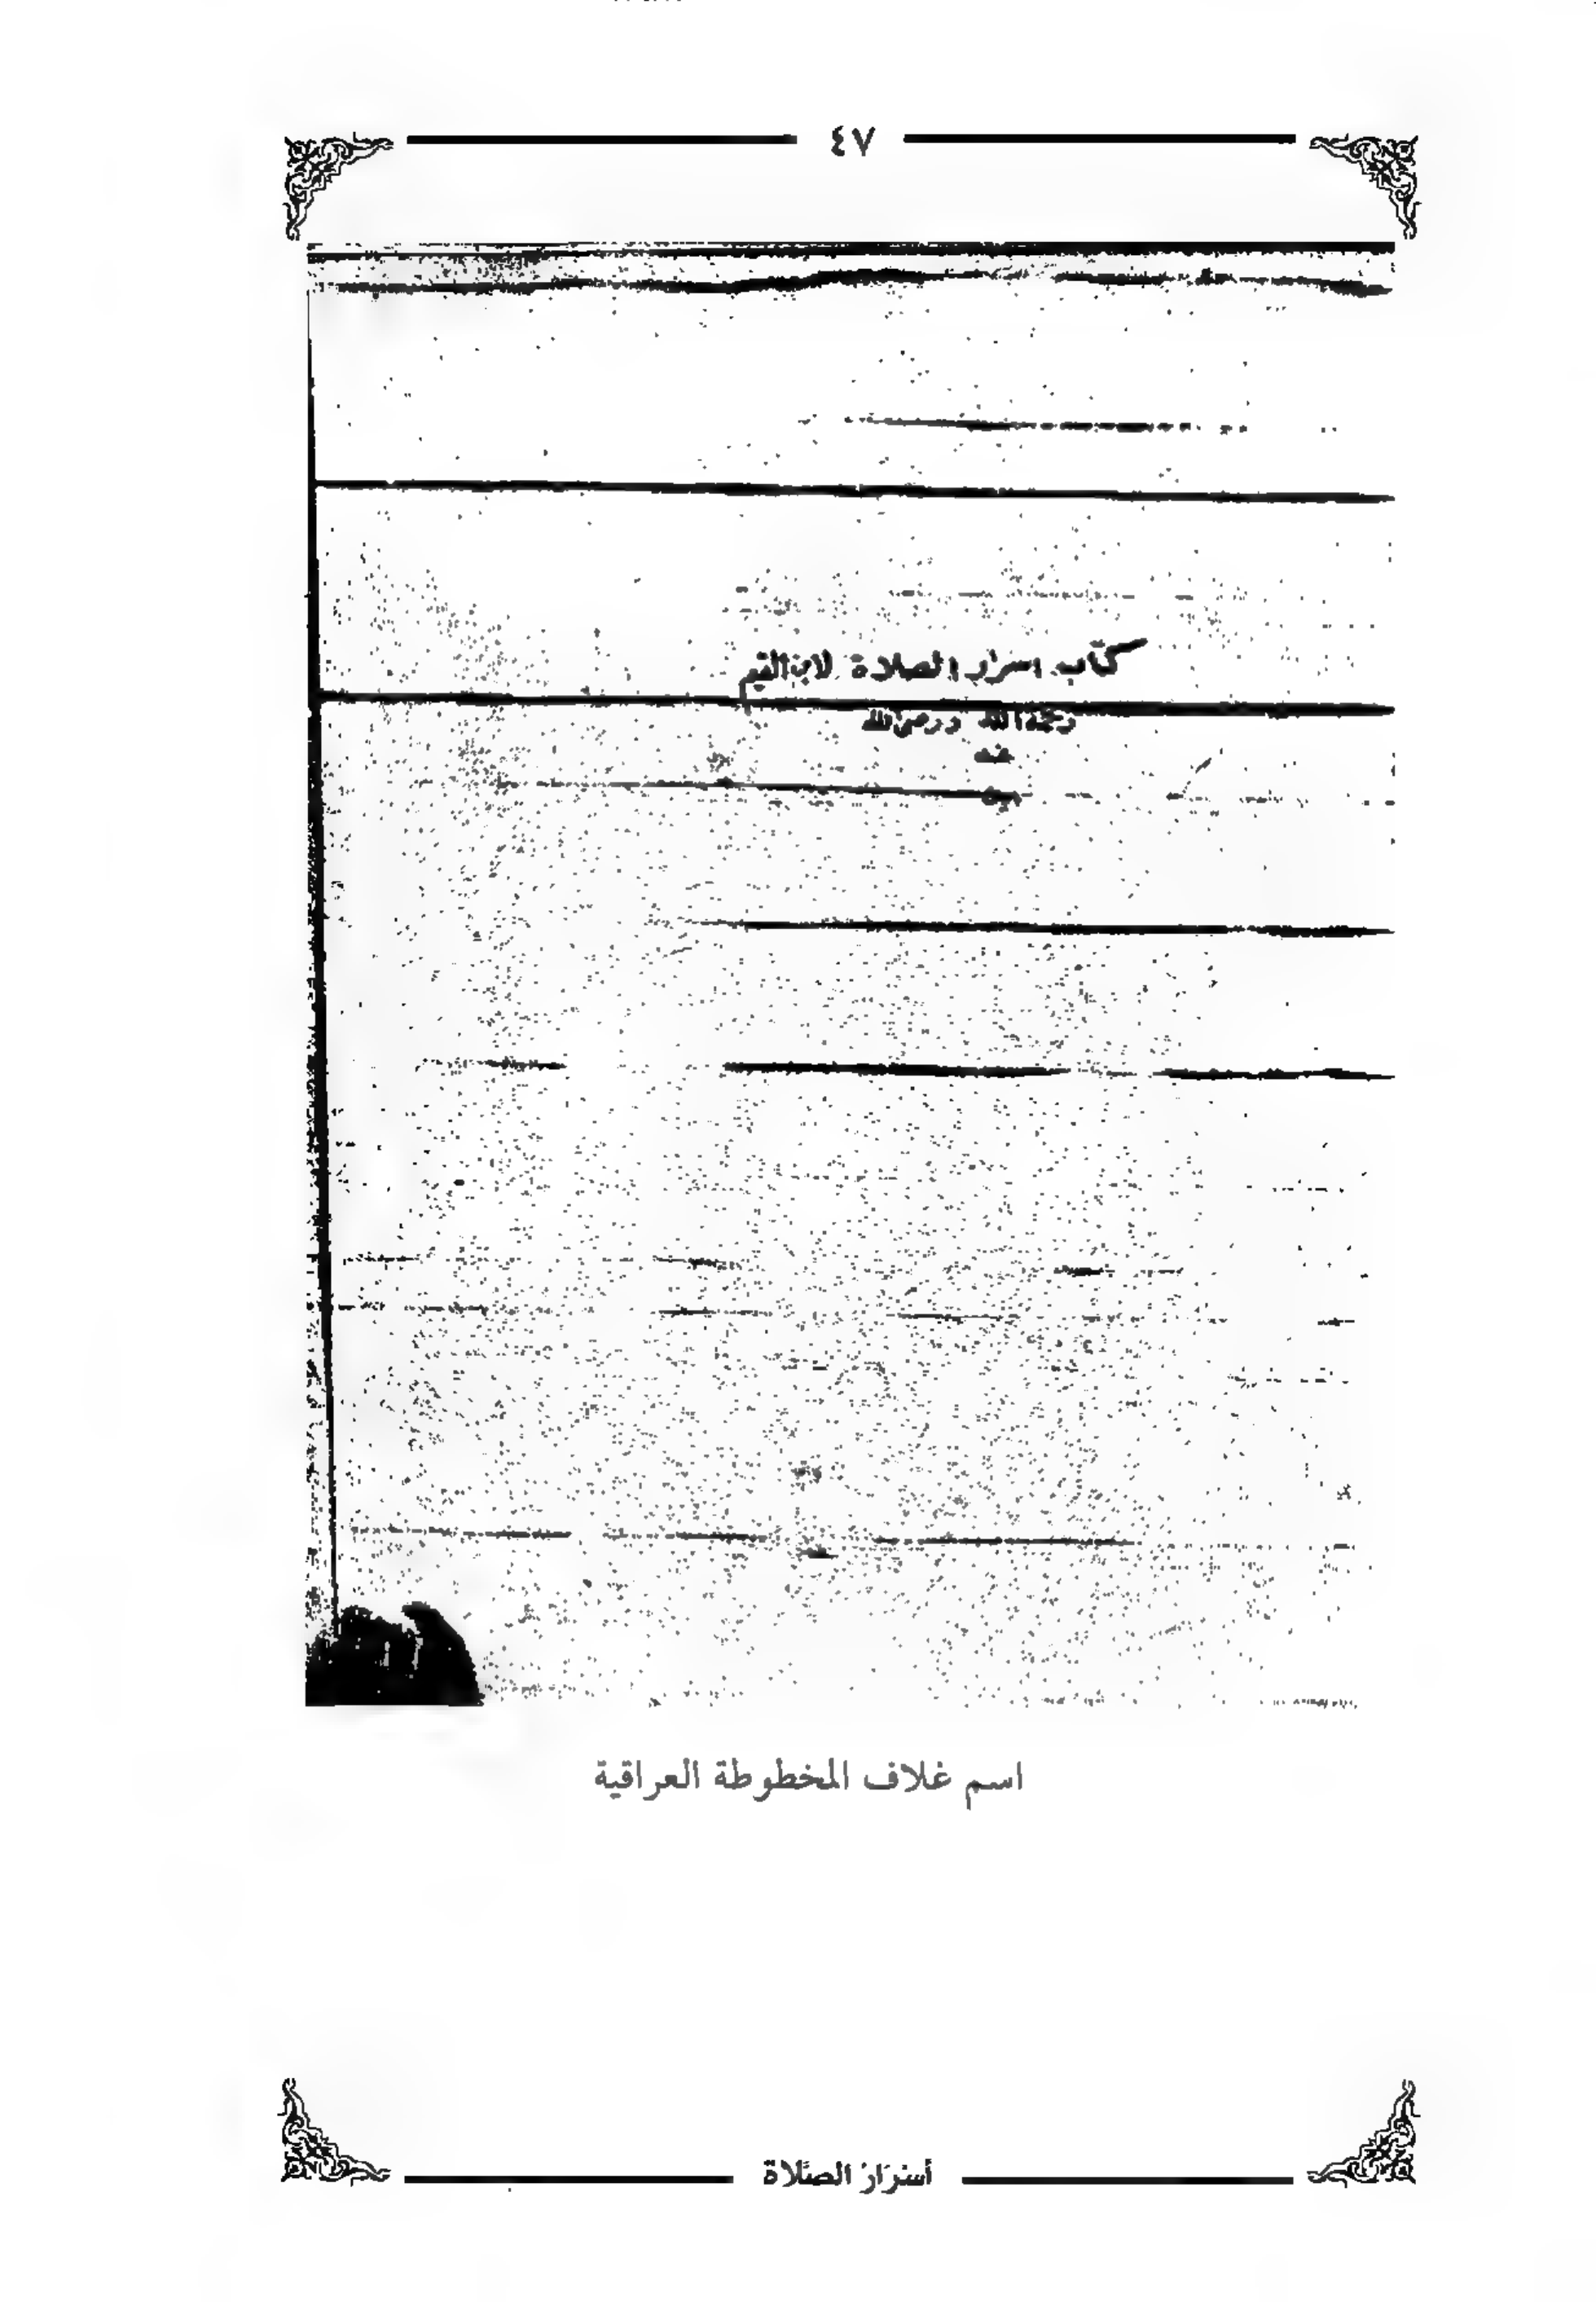 ٤٧
كتاب اسرار الصلاة لابن القيم
رحمه الله ورضي الله
عنه
اسم غلاف المخطوطة العراقية
أسْرَارُ الصَّلاة